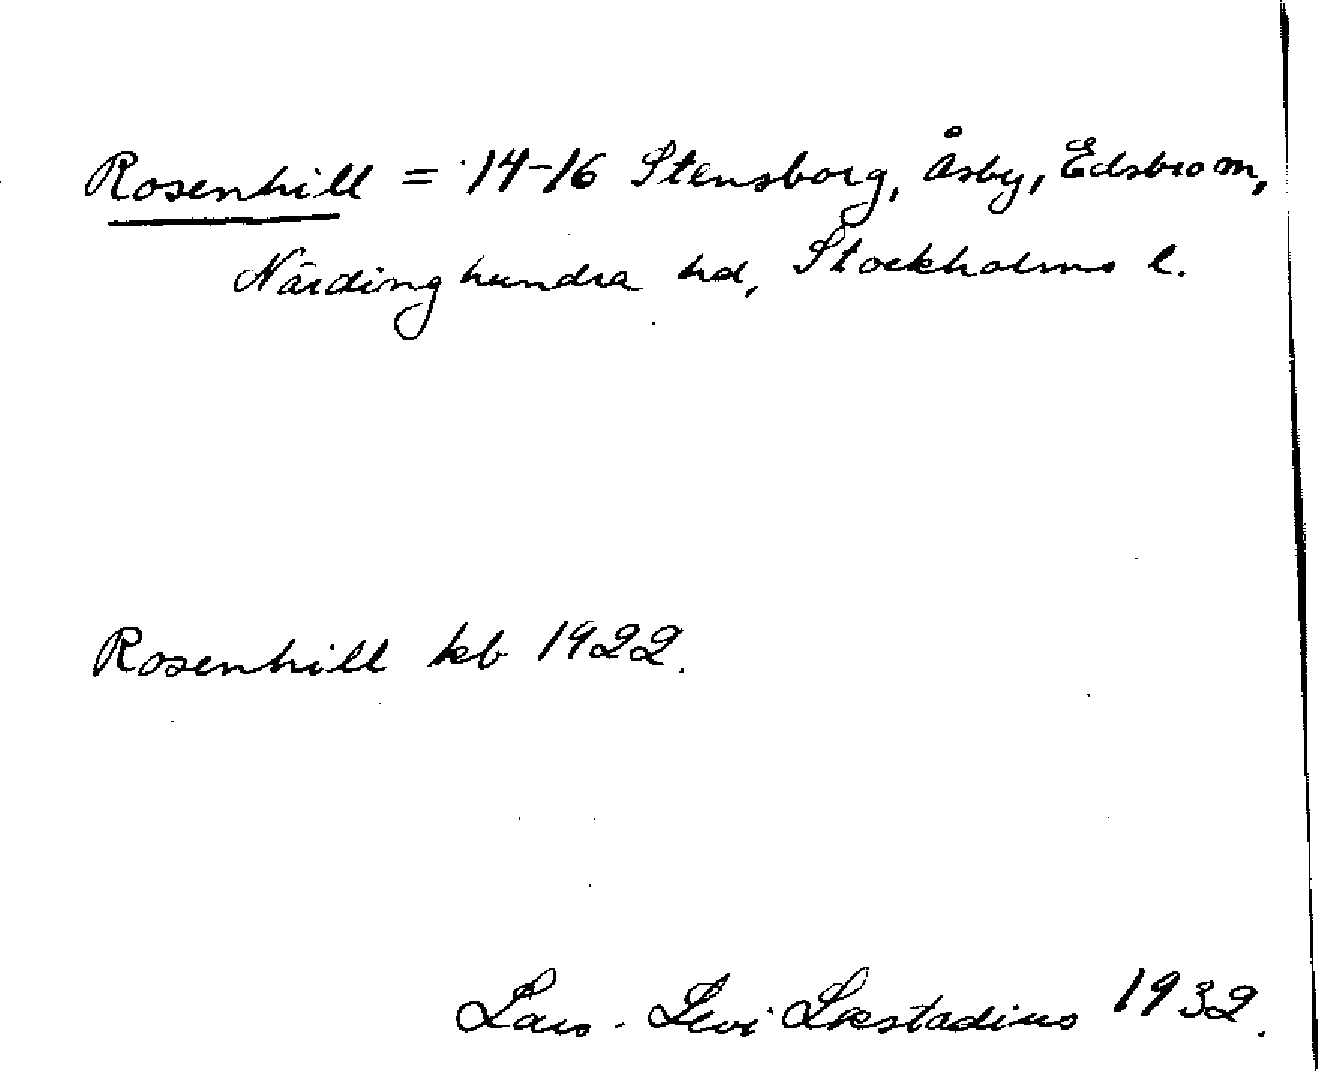 Rosenhill = 14-16 Stensborg, Åsby, Edsbro sn,
Närdinghundra hd, Stockholms l.
Rosenhill kb 1922.
Lars-Levi Læstadius 1932.